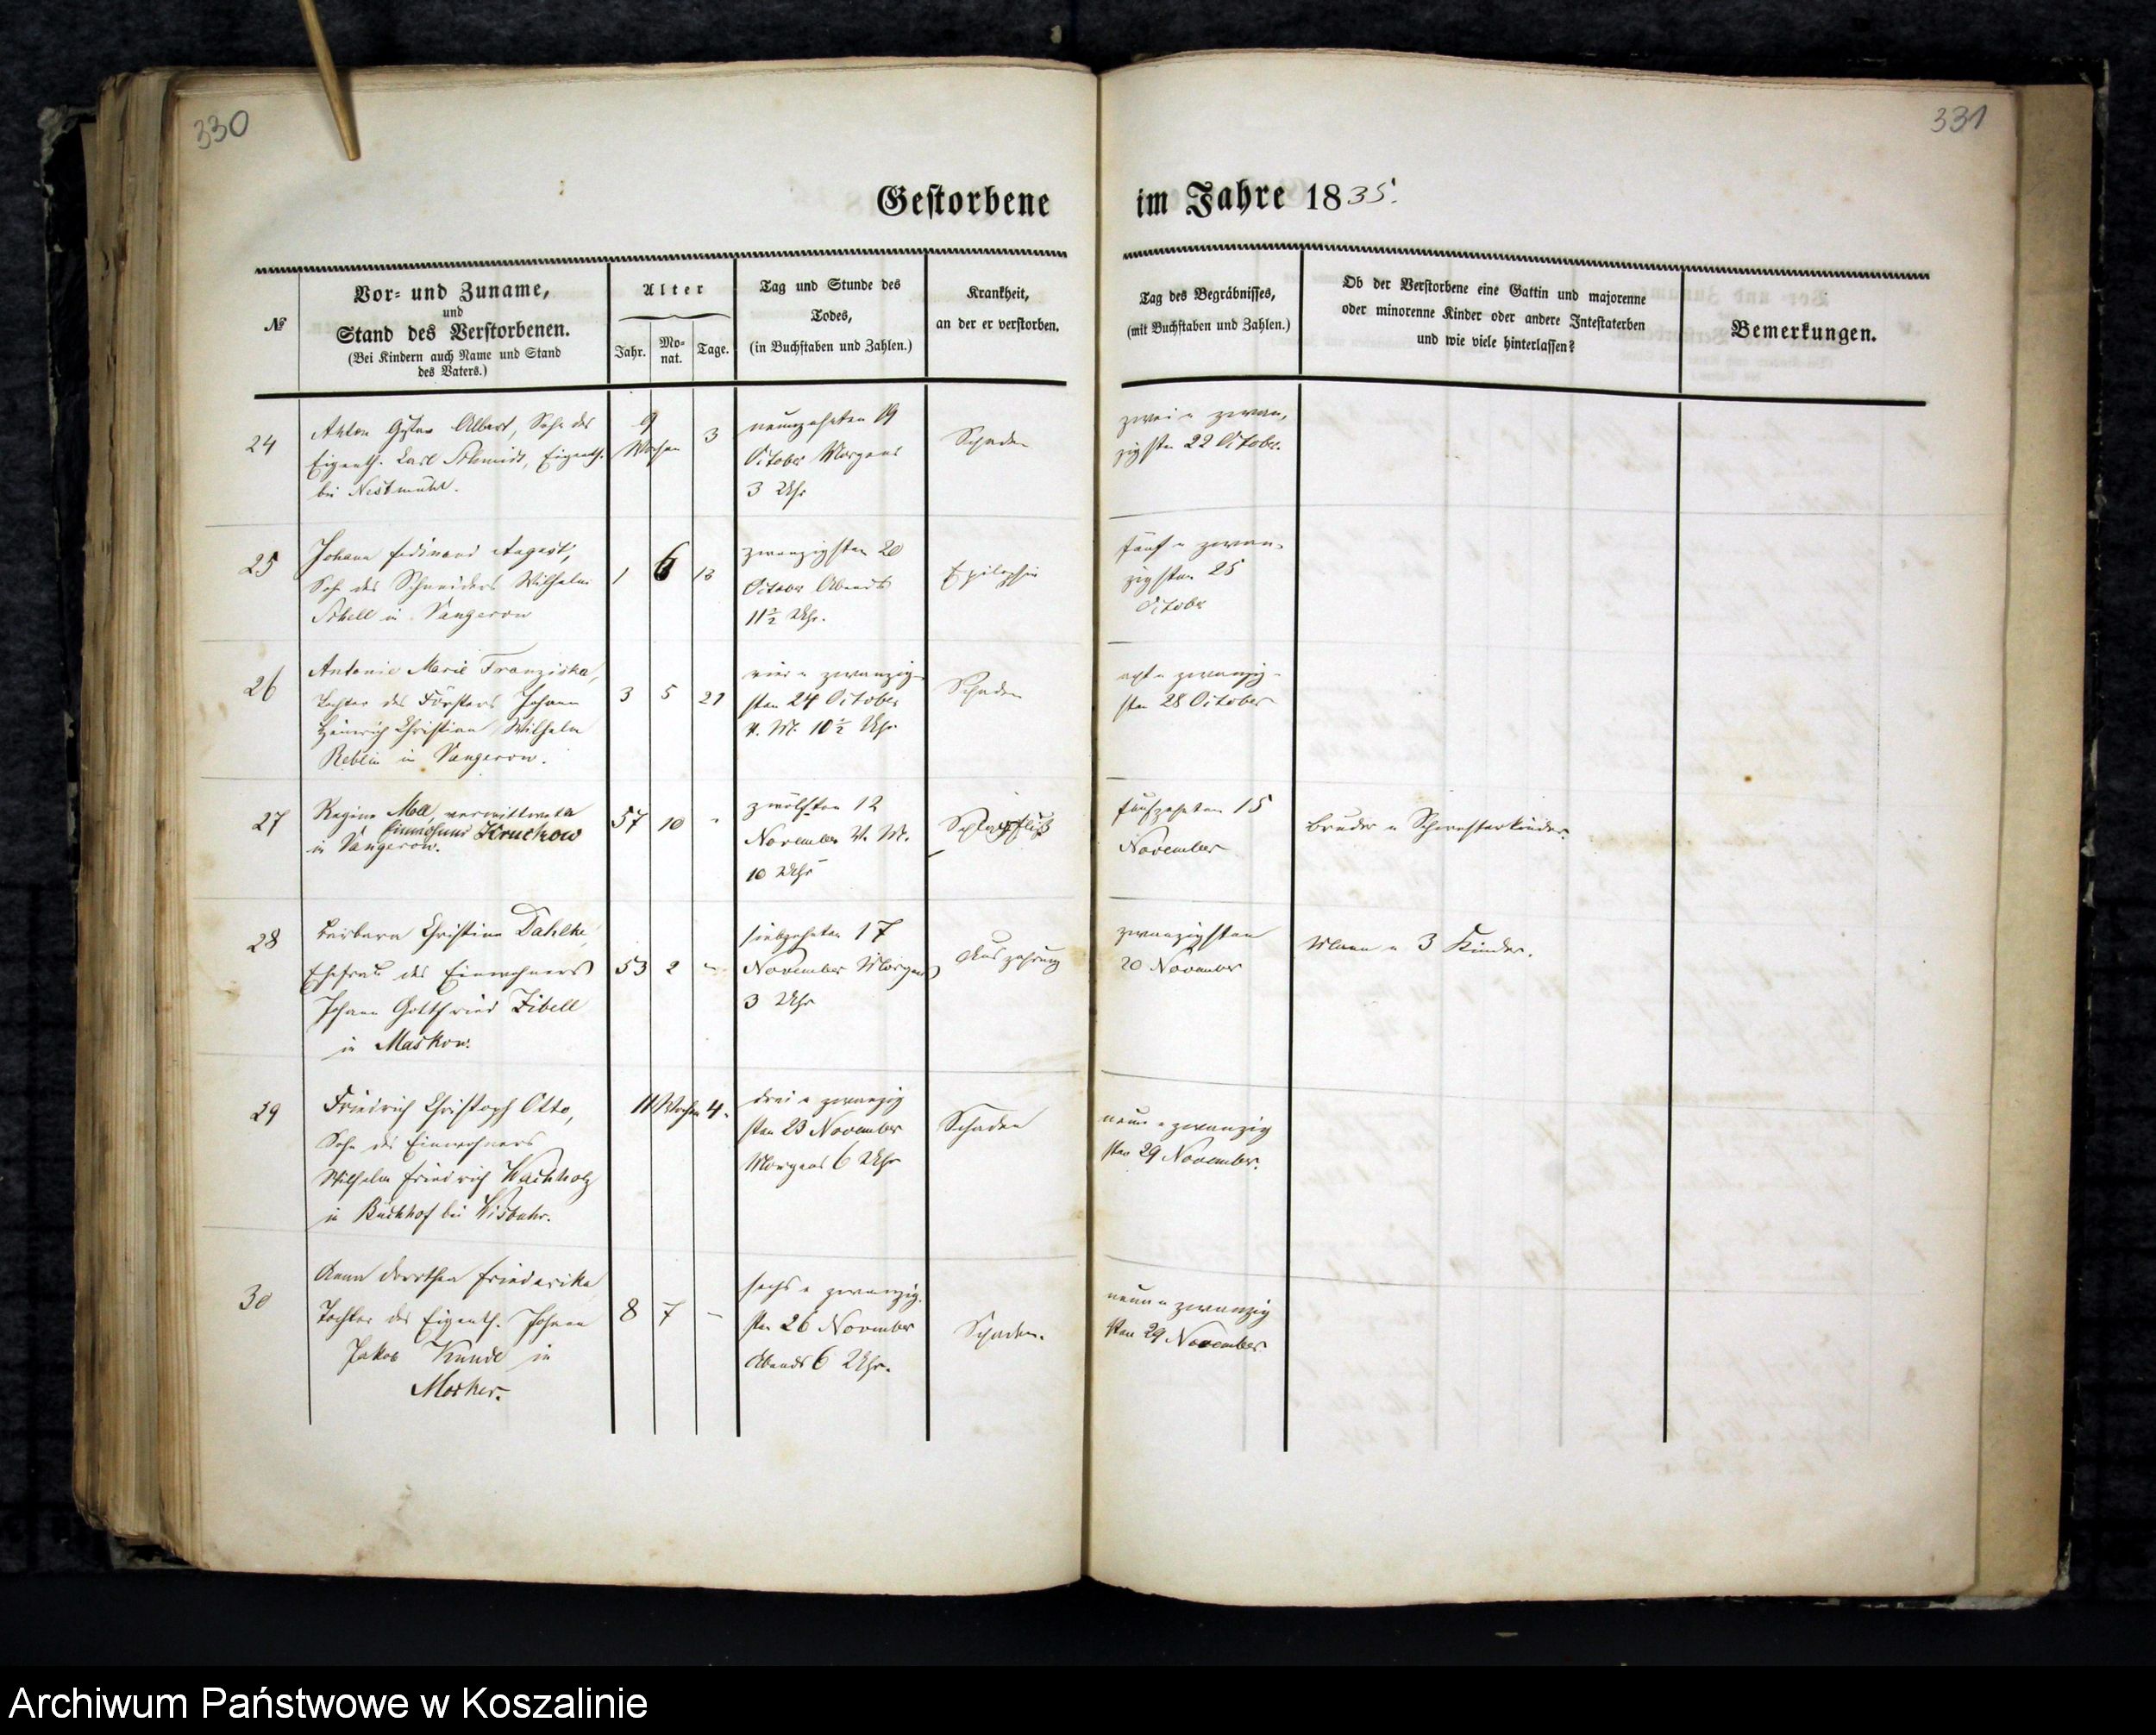 330
331
Gestorbene im Jahre 1835.
№
Vor- und Zuname,
und
Stand des Verstorbenen.
(Bei Kindern auch Name und Stand
des Vaters.)
Alter
Jahr.
Mo-
nat.
Tage.
Tag und Stunde des
Todes,
(in Buchstaben und Zahlen.)
Krankheit,
an der er verstorben.
Tag des Begräbnisses,
(mit Buchstaben und Zahlen.)
Ob der Verstorbene eine Gattin und majorenne
oder minorenne Kinder oder andere Intestaterben
und wie viele hinterlassen?
Bemerkungen.
24
Albert, Sohn des
Eigenth. Carl Schmidt, Eigenth.
bei Nestmühl.
9
Wochen
3
neunzehnten 19
October Morgens
3 Uhr
Schaden
zwei u zwan-
zigsten 22 October.
25
Johann Ferdinand August,
Sohn des Schneiders Wilhelm
Schell in Vangerow
1
6
13
zwanzigsten 20
October Abends
11½ Uhr.
Epilepsie
fünf u zwan-
zigsten 25
October
26
Antonie Marie Franziska,
Tochter des Försters Johann
Heinrich Christian Wilhelm
Reblin in Vangerow.
3
5
21
vier u zwanzig-
sten 24 October
V. M. 10½ Uhr
Schaden
acht u zwanzig-
sten 28 October
27
Regine Moll, verwittwete
Einwohner Kruckow
in Vangerow.
57
10
-
zwölften 12
November V. M.
10 Uhr
Schlagfluß
fünfzehnten 15
November
Bruder u Schwesterkinder.
28
Barbara Christine Dahlke,
Ehefrau des Einwohners
Johann Gottfried Zibell
in Maskow.
53
2
-
siebzehnten 17
November Morgens
3 Uhr
Auszehrung
zwanzigsten
20 November
Mann u 3 Kinder.
29
Friedrich Christoph Otto,
Sohn des Einwohners
Wilhelm Friedrich Wachholz
in Buchhof bei Wisbuhr.
11 Wochen
4.
drei u zwanzig
sten 23 November
Morgens 6 Uhr
Schaden
neun u zwanzig
sten 29 November.
30
Anna Dorothea Friederike,
Tochter des Eigenth. Johann
Jakob Kunde in
Mocker.
8
7
-
sechs u zwanzig-
sten 26 November
Abends 6 Uhr.
Schaden.
neun u zwanzig
sten 29 November
Archiwum Państwowe w Koszalinie